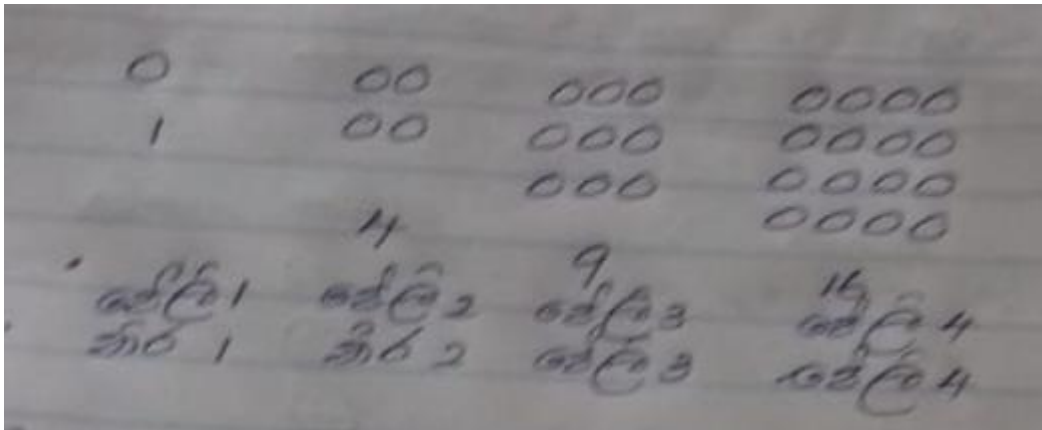 0 00 000 0000
1 00 000 0000
000 0000
0000
4 9 16
පේලි 1 පේලි 2 පේලි 3 පේලි 4
තීර 1 තීර 2 පේලි 3 පේලි 4